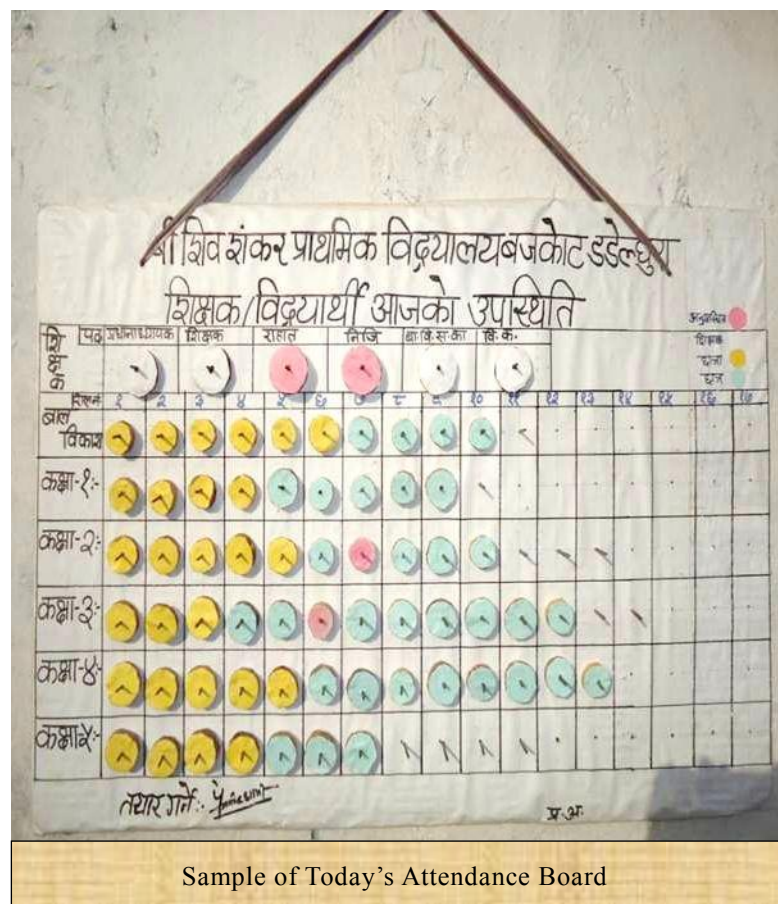 श्री शिव शंकर प्राथमिक विद्र्यालय बजकोट डडेल्धुरा
शिक्षक/विद्र्यार्थी आजको उपस्थिति
अनुपस्थित
शिक्षक
छात्रा
छात्र
शिक्षक
पद प्रधानाध्यापक शिक्षक राहात निजि बा.वि.स.का वि.क.
१ २ ३ ४ ५ ६ ७ ८ ९ १० ११ १२ १३ १४ १५ १६ १७
बाल विकास
कक्षा-१:-
कक्षा-२:-
कक्षा-३:-
कक्षा-४:-
कक्षा ५:-
तयार गर्ने:-
प्र.अ.
Sample of Today's Attendance Board